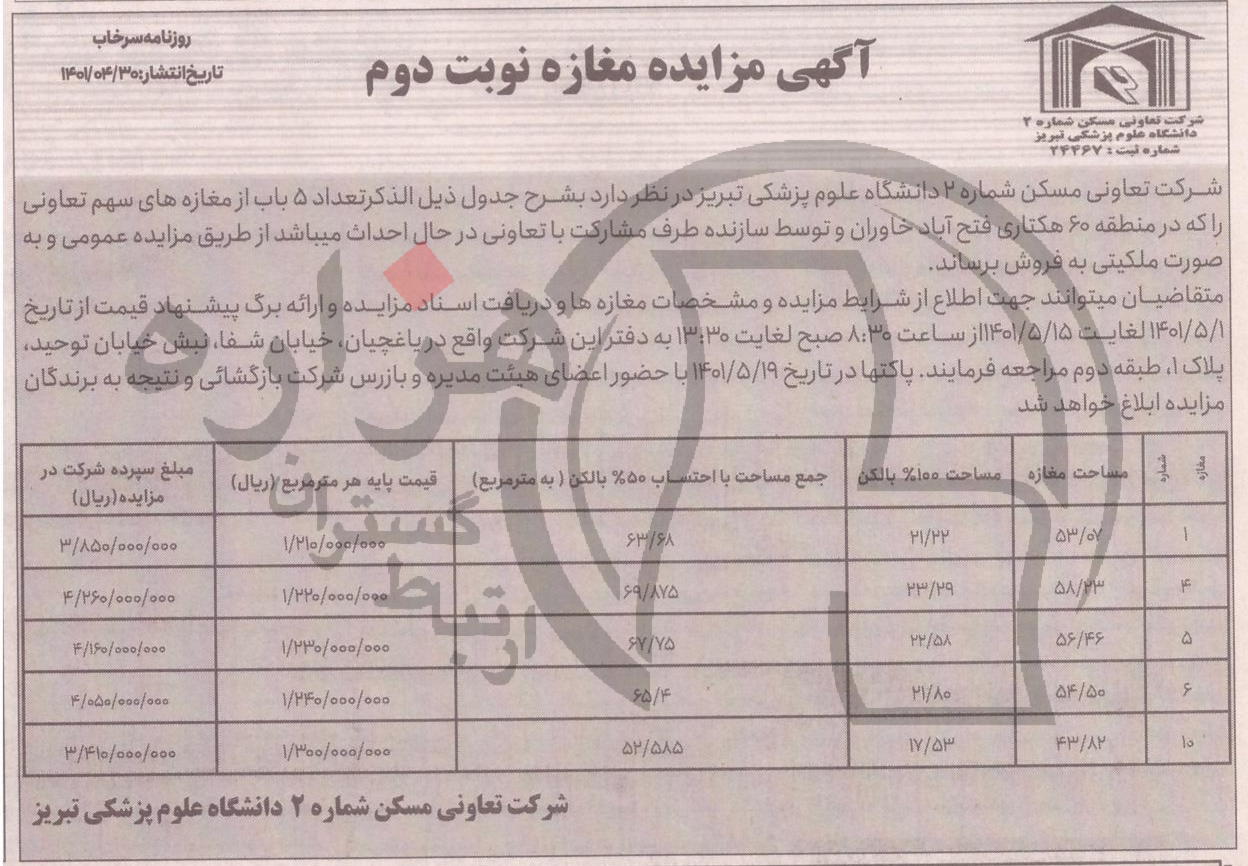 روزنامه سرخاب
تاریخ انتشار: ۱۴۰۱/۰۴/۳۰
آگهی مزایده مغازه نوبت دوم
شرکت تعاونی مسکن شماره ۲
دانشگاه علوم پزشکی تبریز
شماره ثبت : ۲۴۴۶۷
شرکت تعاونی مسکن شماره ۲ دانشگاه علوم پزشکی تبریز در نظر دارد بشرح جدول ذیل الذکر تعداد ۵ باب از مغازه های سهم تعاونی
را که در منطقه ۶۰ هکتاری فتح آباد خاوران و توسط سازنده طرف مشارکت با تعاونی در حال احداث میباشد از طریق مزایده عمومی و به
صورت ملکیتی به فروش برساند.
متقاضیان میتوانند جهت اطلاع از شرایط مزایده و مشخصات مغازه ها و دریافت اسناد مزایده و ارائه برگ پیشنهاد قیمت از تاریخ
۱۴۰۱/۵/۱ لغایت ۱۴۰۱/۵/۱۵ از ساعت ۸:۳۰ صبح لغایت ۱۳:۳۰ به دفتر این شرکت واقع در یاغچیان، خیابان شفا، نبش خیابان توحید،
پلاک ۱، طبقه دوم مراجعه فرمایند. پاکتها در تاریخ ۱۴۰۱/۵/۱۹ با حضور اعضای هیئت مدیره و بازرس شرکت بازگشائی و نتیجه به برندگان
مزایده ابلاغ خواهد شد
شماره مغازه مساحت مغازه مساحت ۱۰۰% بالکن جمع مساحت با احتساب ۵۰% بالکن ( به مترمربع) قیمت پایه هر مترمربع (ریال) مبلغ سپرده شرکت در مزایده(ریال)
۱ ۵۳/۰۷ ۲۱/۲۲ ۶۳/۶۸ ۱/۲۱۰/۰۰۰/۰۰۰ ۳/۸۵۰/۰۰۰/۰۰۰
۴ ۵۸/۲۳ ۲۳/۲۹ ۶۹/۸۷۵ ۱/۲۲۰/۰۰۰/۰۰۰ ۴/۲۶۰/۰۰۰/۰۰۰
۵ ۵۶/۴۶ ۲۲/۵۸ ۶۷/۷۵ ۱/۲۳۰/۰۰۰/۰۰۰ ۴/۱۶۰/۰۰۰/۰۰۰
۶ ۵۴/۵۰ ۲۱/۸۰ ۶۵/۴ ۱/۲۴۰/۰۰۰/۰۰۰ ۴/۰۵۰/۰۰۰/۰۰۰
۱۰ ۴۳/۸۲ ۱۷/۵۳ ۵۲/۵۸۵ ۱/۳۰۰/۰۰۰/۰۰۰ ۳/۴۱۰/۰۰۰/۰۰۰
شرکت تعاونی مسکن شماره ۲ دانشگاه علوم پزشکی تبریز
هزاره
گستران
ارتباط